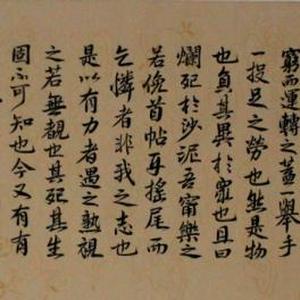 窮而運轉之蓋一舉手
一投足之勞也然是物
也負其異於衆也且曰
爛死於沙泥吾甯樂之
若俛首帖耳搖尾而
乞憐者非我之志也
是以有力者遇之熟視
之若無覩也其死其生
固不可知也今又有有